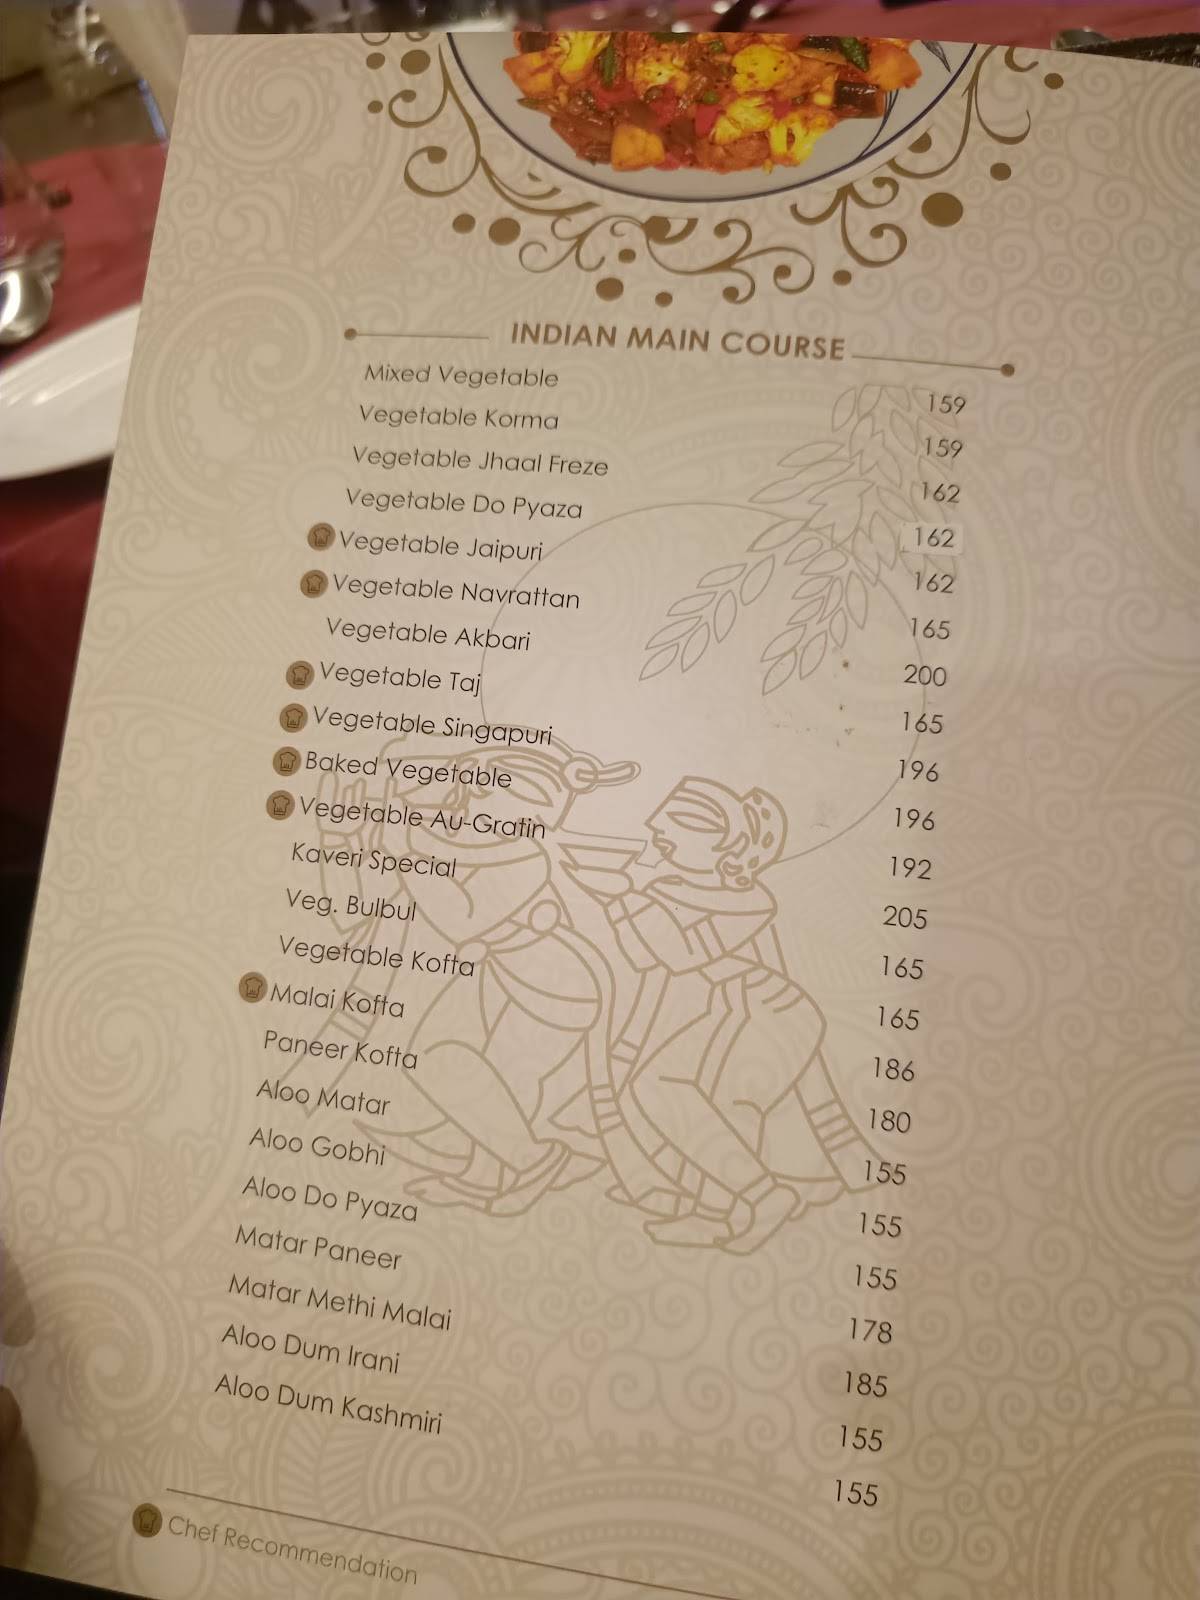 INDIAN MAIN COURSE
Mixed Vegetable 159
Vegetable Korma 159
Vegetable Jhaal Freze 162
Vegetable Do Pyaza 162
Vegetable Jaipuri 162
Vegetable Navrattan 165
Vegetable Akbari 200
Vegetable Taj 165
Vegetable Singapuri 196
Baked Vegetable 196
Vegetable Au-Gratin 192
Kaveri Special 205
Veg. Bulbul 165
Vegetable Kofta 165
Malai Kofta 186
Paneer Kofta 180
Aloo Matar 155
Aloo Gobhi 155
Aloo Do Pyaza 155
Matar Paneer 178
Matar Methi Malai 185
Aloo Dum Irani 155
Aloo Dum Kashmiri 155
Chef Recommendation